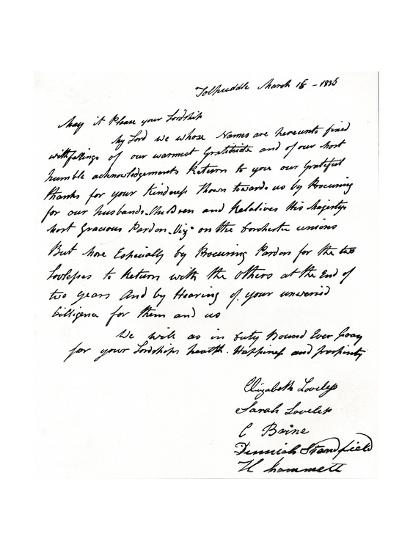 Tolpuddle March 16 - 1835
May it Please your Lordship
My Lord we whose Names are hereunto fixed
with feelings of our warmest Gratitude and of our most
humble acknowledgements Return to you our Grateful
thanks for your Kindness Shown towards us by Procuring
for our husbands Children and Relatives His Majestys
most Gracious Pardon. on the Dorchester unions
But More Especially by Procuring Pardons for the two
Lovelesses to Return with the Others at the End of
two years And by Hearing of your unwearied
Dilligence for them and us
We will as in Duty Bound Ever Pray
for your Lordships health. Happiness and prosperity
Elizabeth Loveless
Sarah Loveless
C Brine
Standfield
H hammett